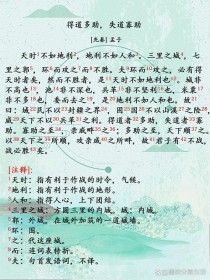 得道多助，失道寡助
[先秦] 孟子
天时¹不如地利²，地利不如人和³。三里之城⁴，七
里之郭⁵，环⁶而攻之⁷而⁸不胜。夫⁹环而攻之，必有得
天时者矣，然而不胜者，是天时不如地利也。城非
不高也，池非不深也，兵革非不坚利也，米粟
非不多也，委而去之，是地利不如人和也。故
曰：域民不以封疆之界，固国不以山溪之险，
威天下不以兵革之利。得道者多助，失道者寡
助。寡助之至，亲戚畔之。多助之至，天下顺之。
以天下之所顺，攻亲戚之所畔，故君子有不战，
战必胜矣。
[注释]：
1 天时：指有利于作战的时令、气候。
2 地利：指有利于作战的地形。
3 人和：指得人心，上下团结。
4 三里之城：方圆三里的内城。城：内城。
5 郭：外城。在城外加筑的一道城墙。
6 环：围。
7 之：代这座城。
8 而：连词表转折。
9 夫：句首发语词，不译。